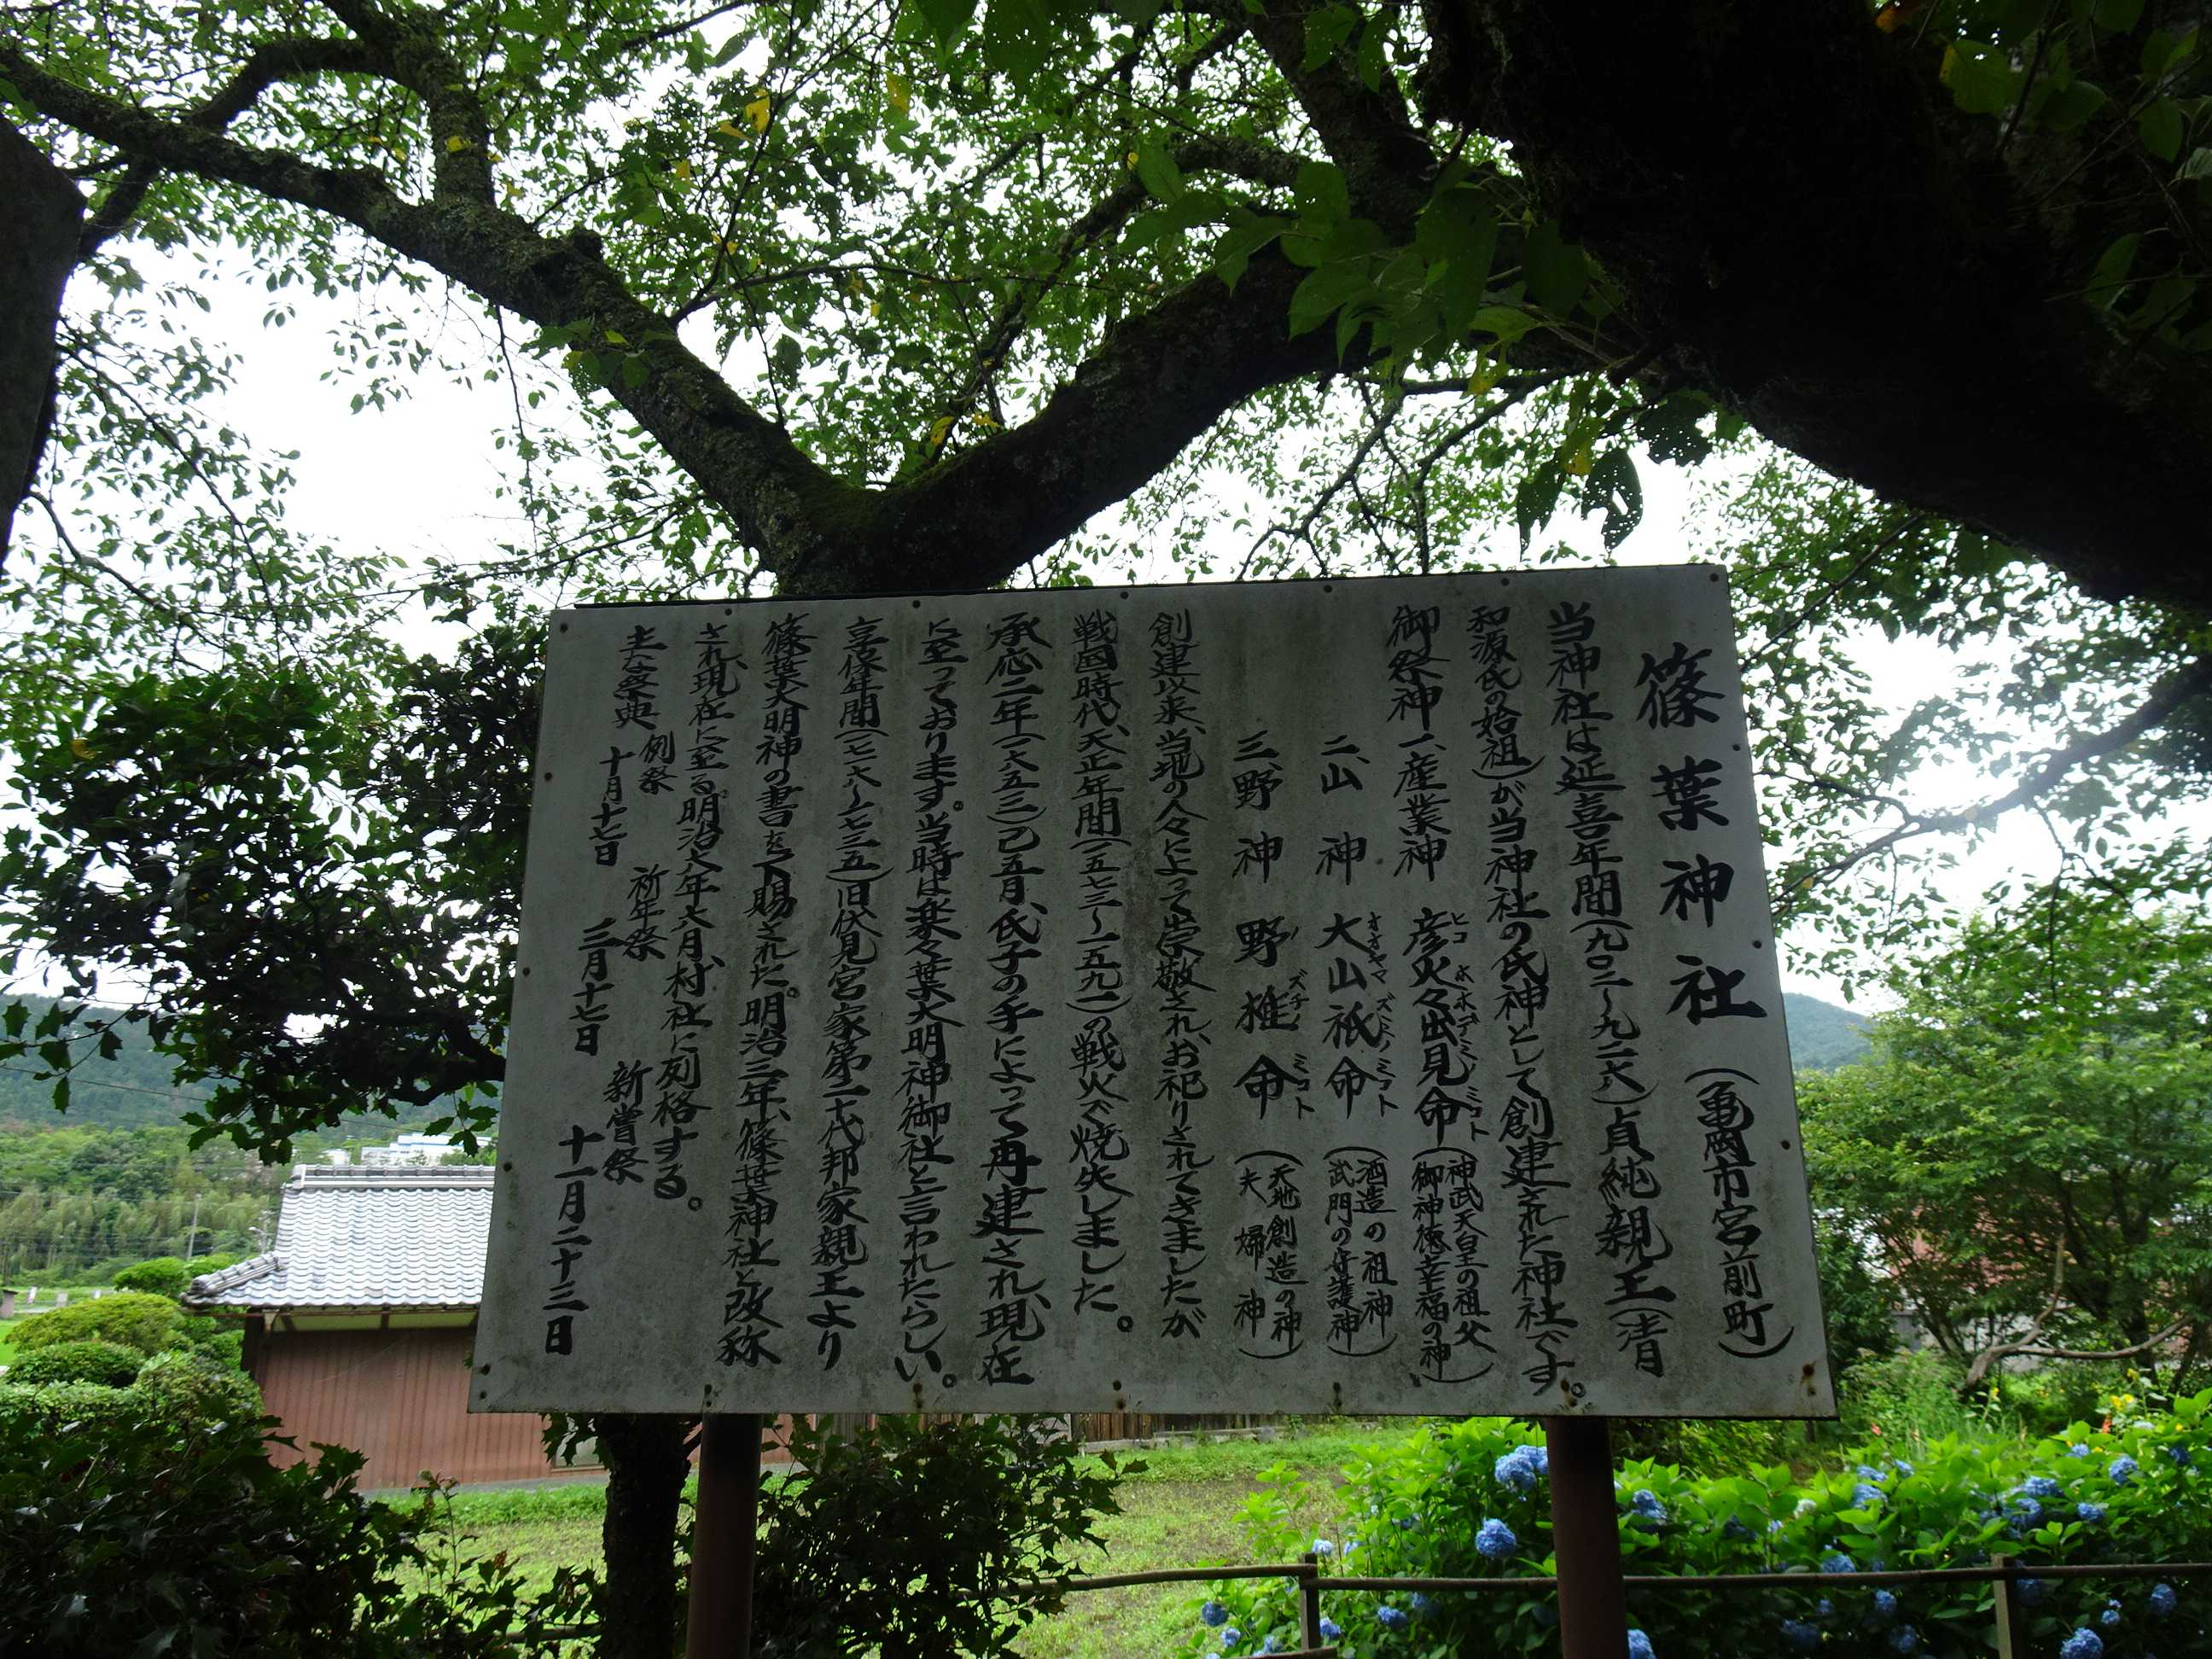 篠葉神社（亀岡市宮前町）
当神社は延喜年間（九〇二〜九二六）貞純親王（清
和源氏の始祖）が当神社の氏神として創建された神社です。
御祭神 一、産業神 彦火々出見命（神武天皇の祖父 御神徳幸福の神）
ヒコ ホホデミノミコト
二、山神 大山祇命（酒造の祖神 武門の守護神）
オオヤマズミノミコト
三、野神 野椎命（天地創造の神 夫婦神）
ノズチノミコト
創建以来、当地の人々によって崇敬され、お祀りされてきましたが
戦国時代、天正年間（一五七三〜一五九一）の戦火で焼失しました。
承応二年（一六五三）乙五月、氏子の手によって再建され、現在
に至っております。当時は楽々葉大明神御社と言われたらしい。
享保年間（一七一六〜一七三五）旧伏見宮家第二十代邦家親王より
篠葉大明神の書を下賜された。明治三年、篠葉神社と改称
され現在に至る。明治六年六月、村社に列格する。
主な祭典 例祭 十月十七日 祈年祭 三月十七日 新嘗祭 十一月二十三日